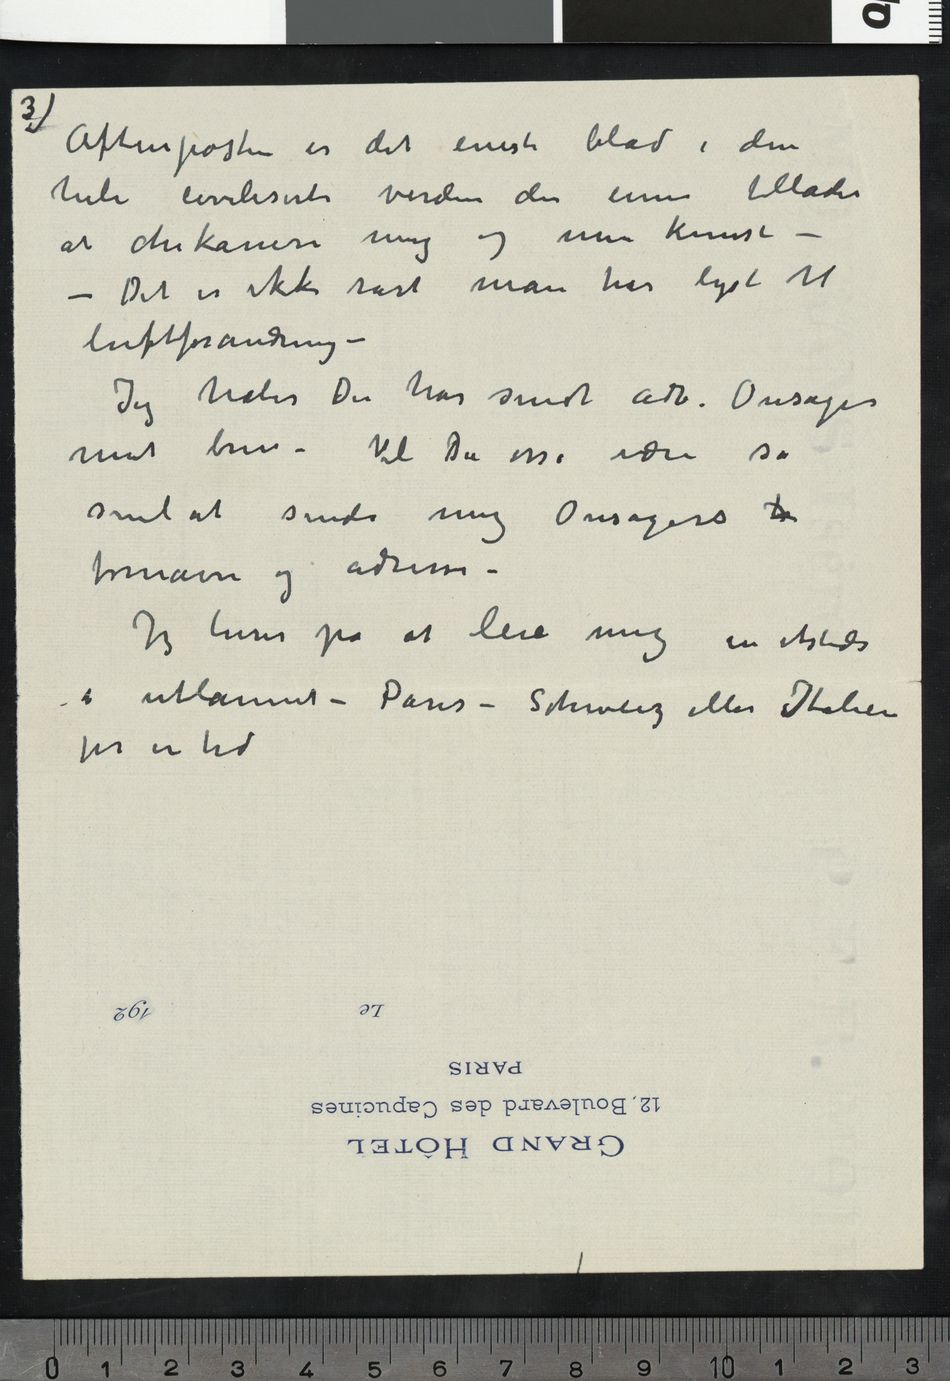 3)
Aftenposten er det eneste blad i den
hele civiliserte verden der ennu tillader
at chikanere mig og min kunst –
– Det er ikke rart man har lyst til
luftforandring –
Jeg haaber Du har sendt adv. Onsager
mit brev – Vil Du også være så
snil at sende mig Onsagers
fornavn og adresse –
Jeg lurer på at leie mig en etsteds
i utlannet – Paris – Schweiz eller Italien
for en tid
192
Le
PARIS
12, Boulevard des Capucines
GRAND HÔTEL
0 1 2 3 4 5 6 7 8 9 10 1 2 3